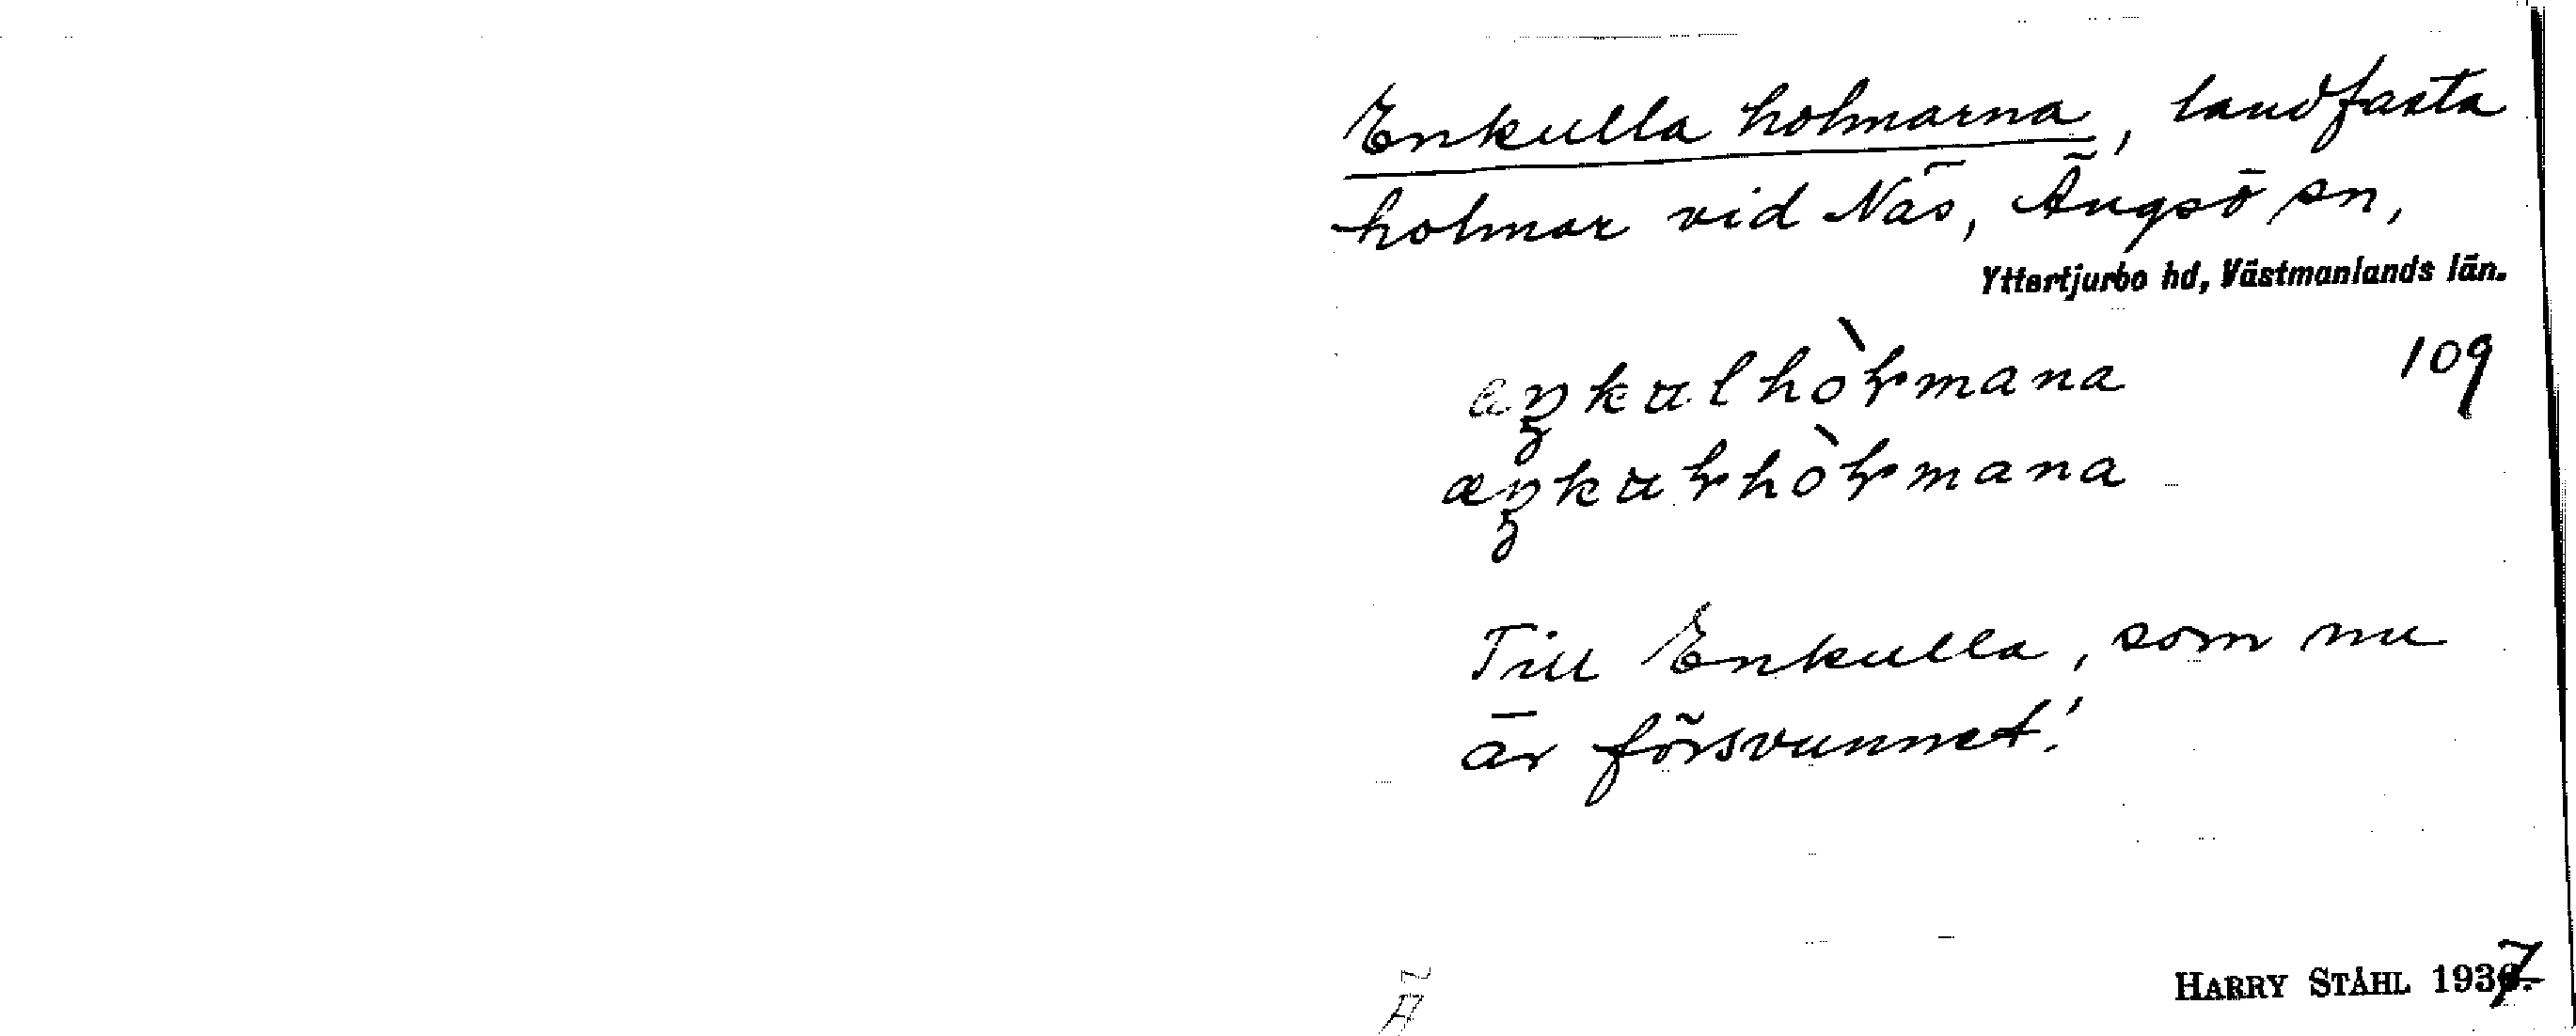 Enkulla holmarna, landfasta
holmar vid Näs, Ängsö sn,
Yttertjurbo hd, Västmanlands län.
109
Till Enkulla, som nu
är försvunnet!
Ä
HARRY STÅHL 1937